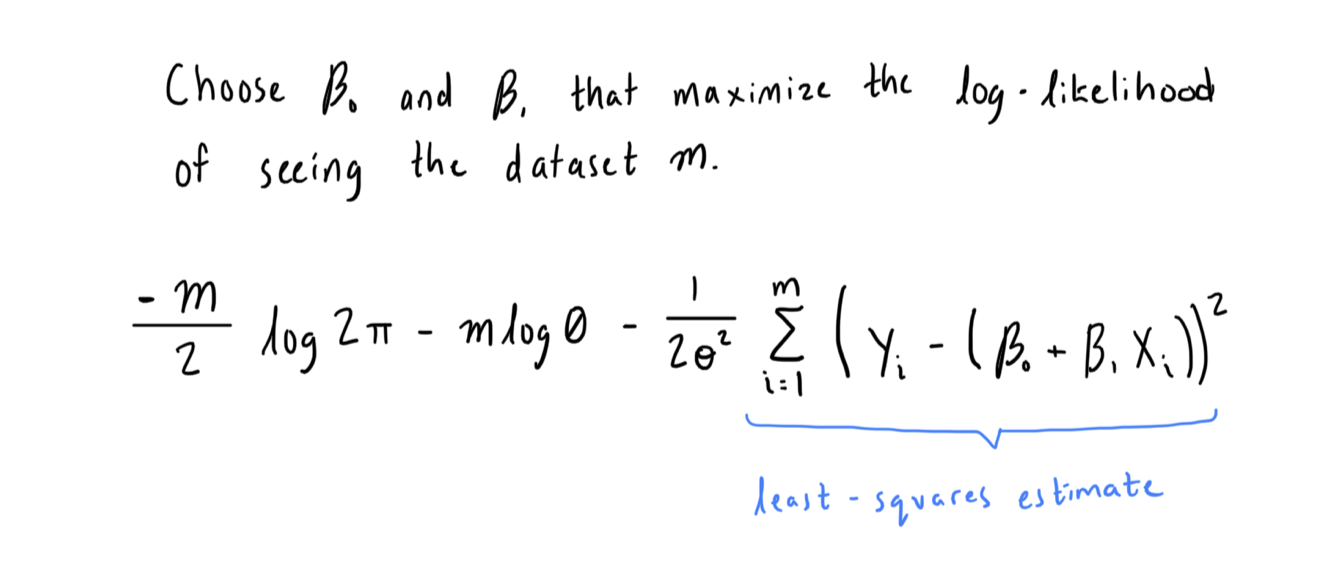 Choose β₀ and β₁ that maximize the log-likelihood
of seeing the dataset m.
-m/2 log 2π - m log θ - 1/2θ² Σᵢ₌₁ᵐ (yᵢ - (β₀ + β₁ xᵢ))²
least-squares estimate